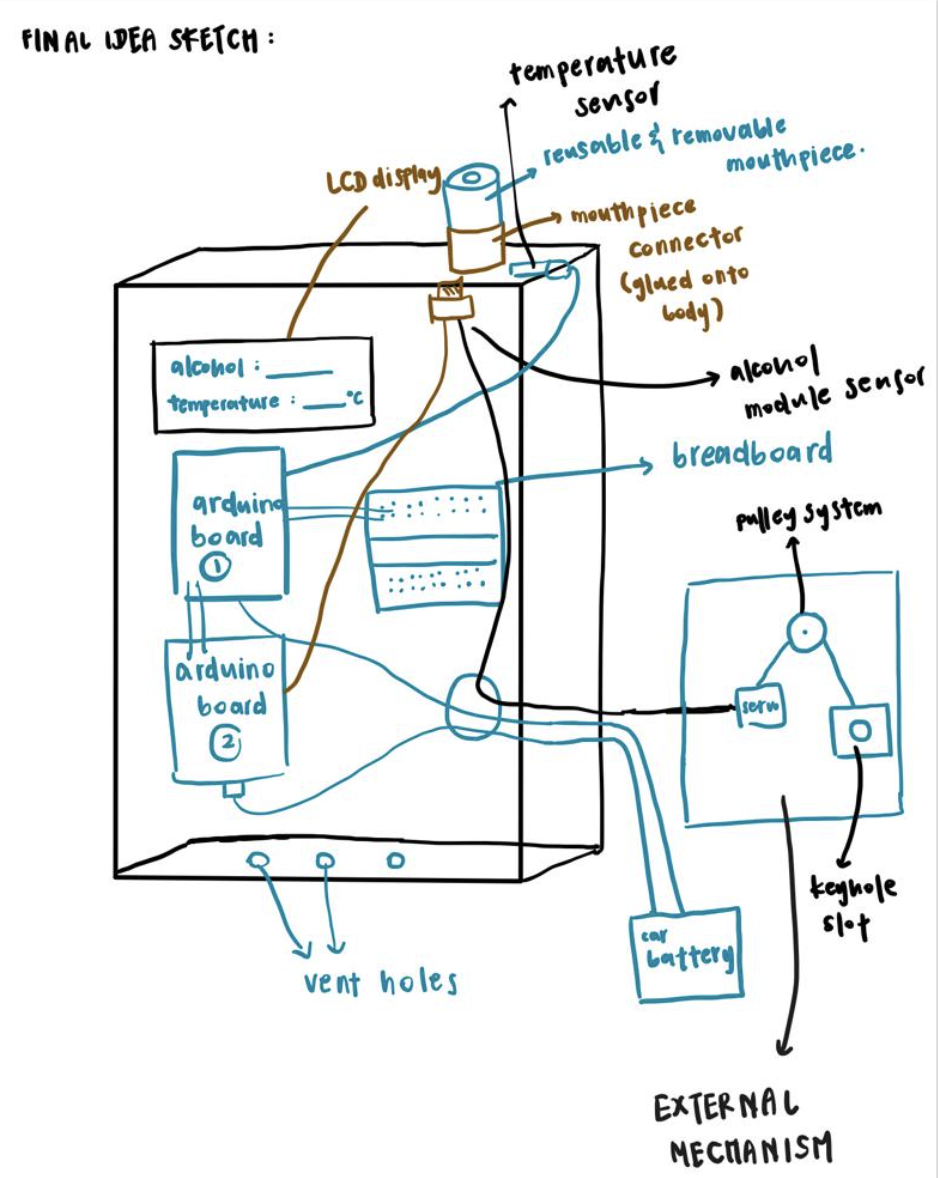 FINAL IDEA SKETCH :
temperature
sensor
reusable & removable
mouthpiece.
LCD display
mouthpiece
connector
(glued onto
body)
alcohol : ____
temperature : ___°C
alcohol
module sensor
breadboard
arduino
board
1
pulley system
arduino
board
2
servo
keyhole
slot
car
battery
vent holes
EXTERNAL
MECHANISM